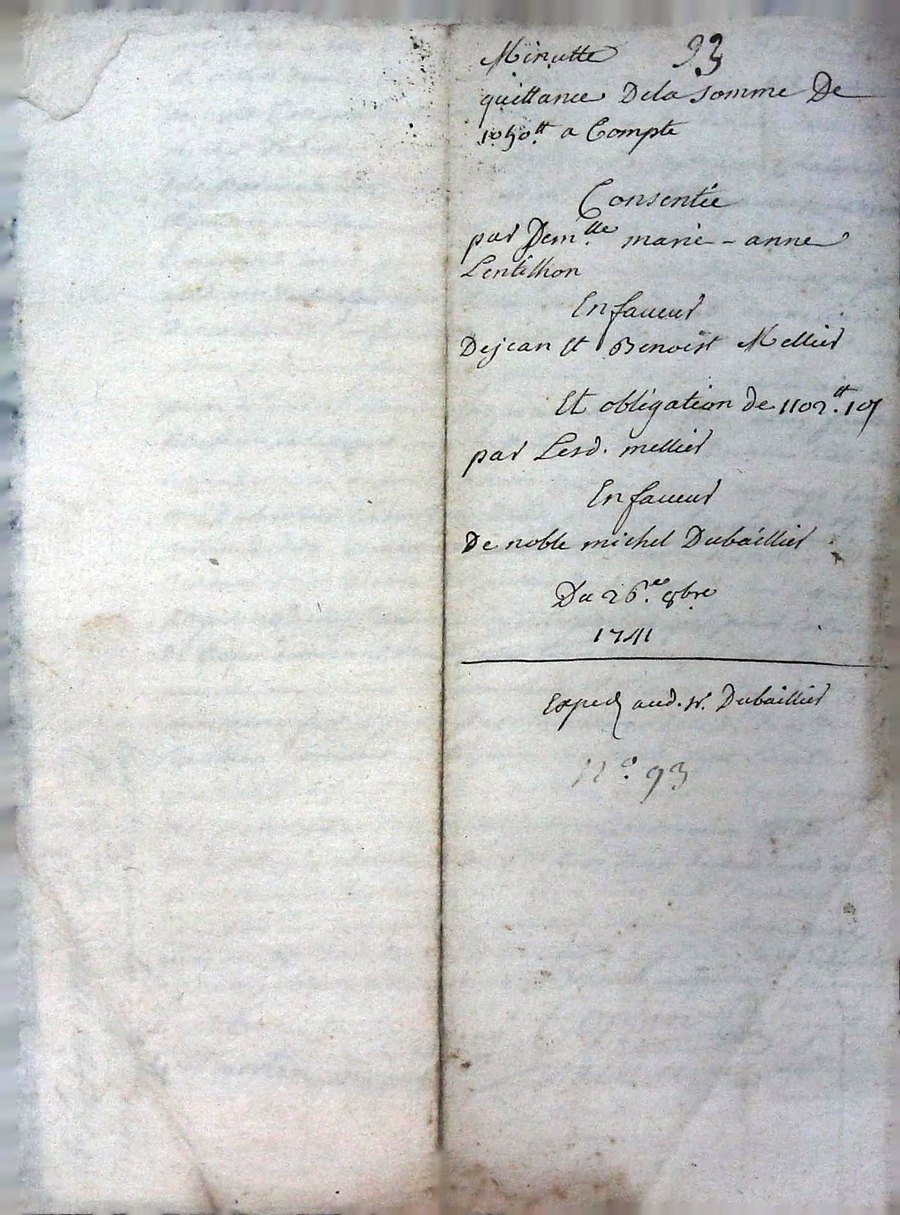 Minutte 93
quittance Dela somme De
1050ᵗᵗ a Compte
Consentie
par Demˡˡᵉ marie-anne
Lentillon
En faveur
De jean Et Benoist Mellier
Et obligation de 1102ᵗᵗ. 10ſ
par Lesd. mellier
En faveur
De noble michel Dubaillier
Du 26ᵉ 8bre
1741
Exped aud. sr. Dubaillier
n° 93